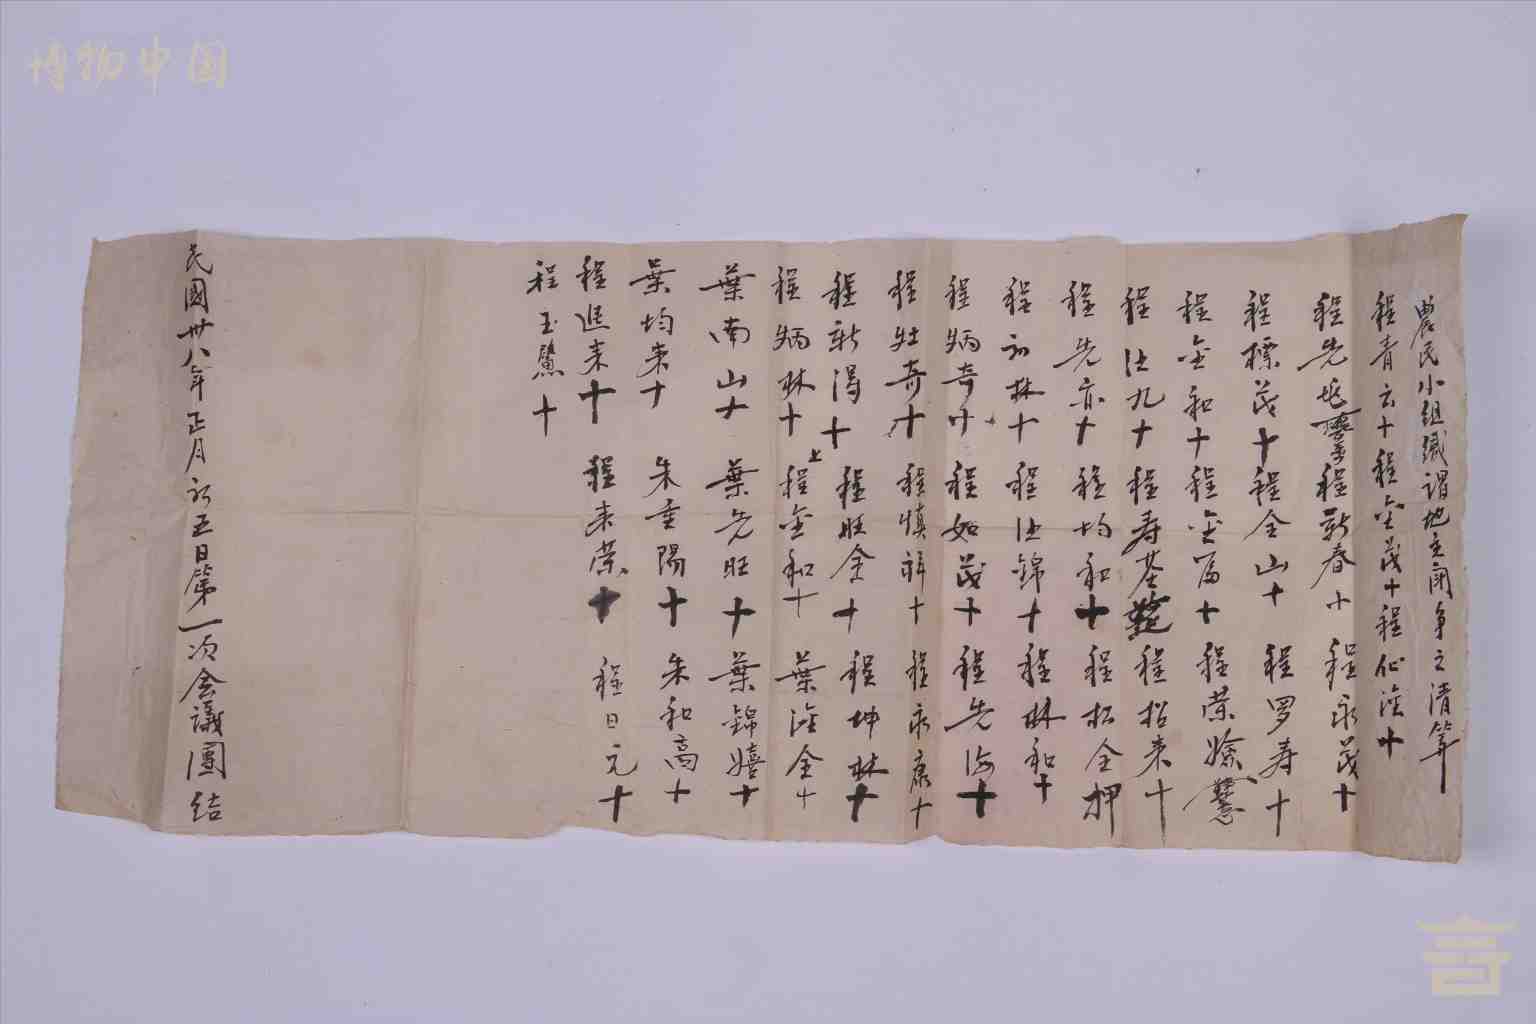 博物中国
農民小组織谓地主闹争之清算
程青云十 程金茂十 程化淦十
程先 程新春十 程永茂十
程標茂十 程全山十 程罗寿十
程金和十 程金富十 程荣
程法九十 程寿基 程招来十
程先亦十 程均和十 程松全押
程初林十 程法錦十 程林和十
程炳奇十 程如茂十 程先海十
程壮奇十 程慎祥十 程永康十
程新渴十 程旺金十 程坤林十
程炳林十 程金和十 葉淦全十
葉南山十 葉先旺十 葉錦嬉十
葉均来十 朱重陽十 朱和高十
程進来十 程来荣十 程日元十
程玉鸞十
民國卅八年正月初五日第一次会議團结